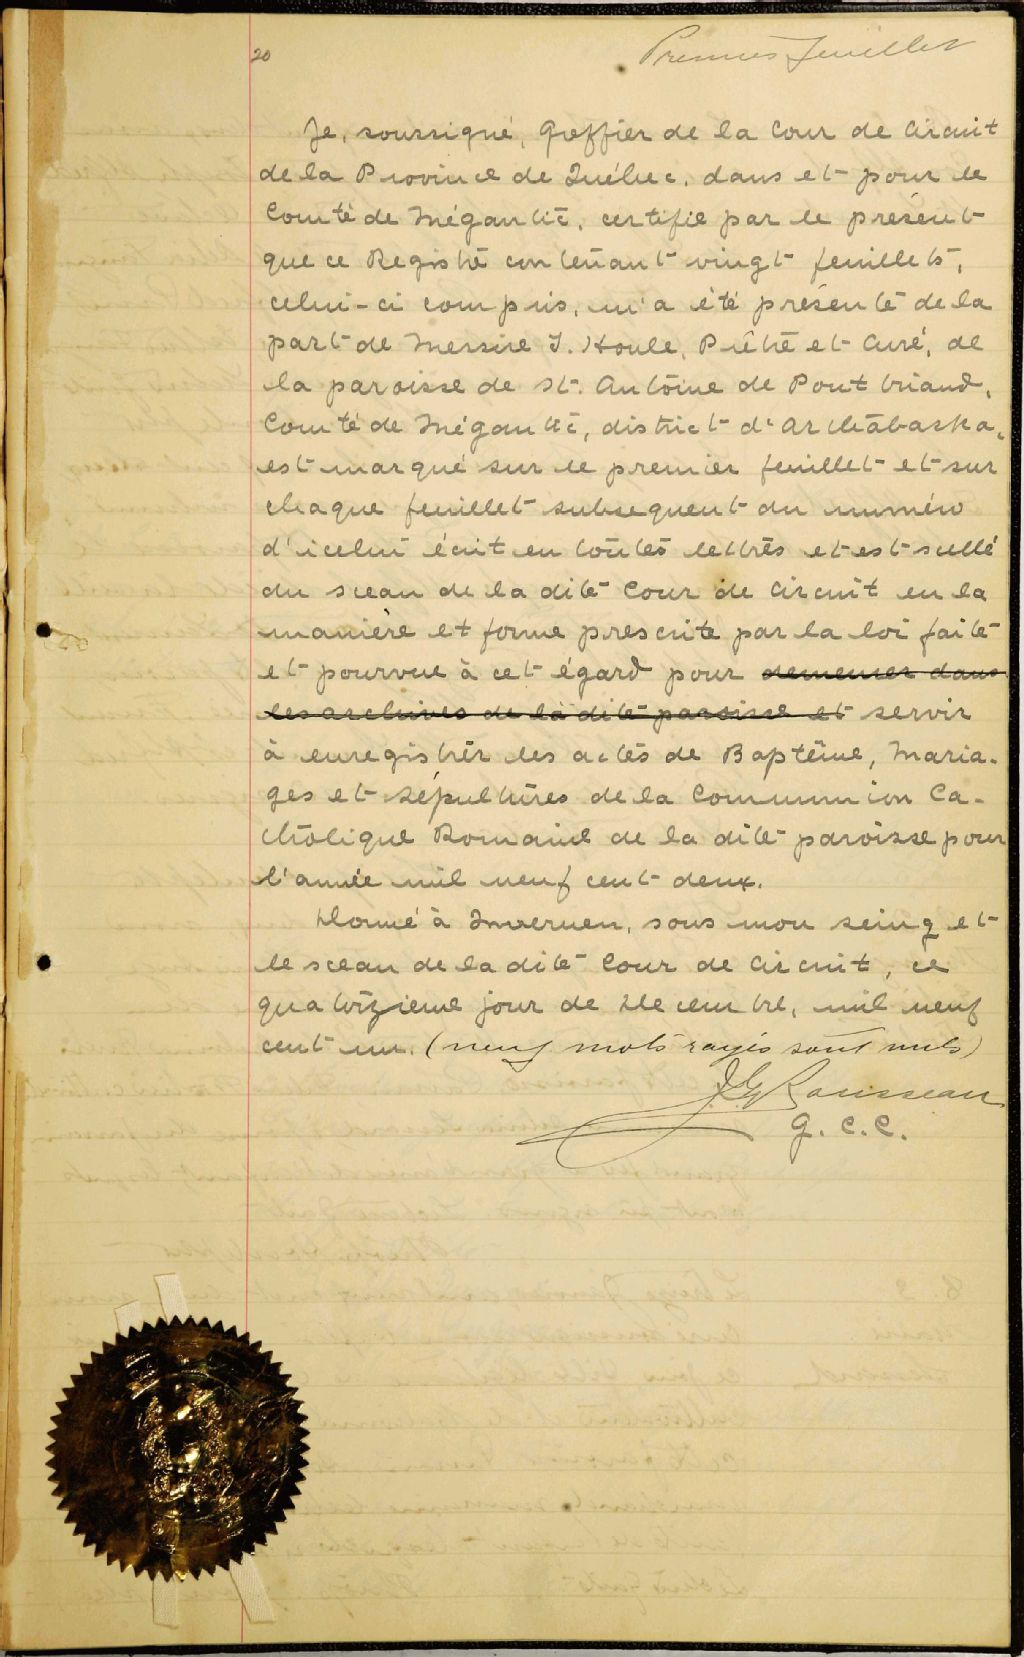 20
Premier feuillet
Je, soussigné, Greffier de la Cour de Circuit
de la Province de Québec, dans et pour le
Comté de Mégantic, certifie par le présent
que ce Registre contenant vingt feuillets,
celui-ci compris, m'a été présenté de la
part de Messire J. Houle, Prêtre et Curé, de
la paroisse de St. Antoine de Pontbriand,
Comté de Mégantic, district d'Arthabaska,
est marqué sur le premier feuillet et sur
chaque feuillet subsequent du numéro
d'icelui écrit en toutes lettres et est scellé
du sceau de la dite Cour de Circuit en la
manière et forme prescrite par la loi faite
et pourvue à cet égard pour demeurer dans
les archives de la dite paroisse et servir
à enregistrer les actes de Baptême, Maria-
ges et Sépultures de la Communion Ca-
tholique Romaine de la dite paroisse pour
l'année mil neuf cent deux.
Donné à Inverness, sous mon seing et
le sceau de la dite Cour de Circuit, ce
quatorzieme jour de Decembre, mil neuf
cent un. (neuf mots rayés sont nuls)
Rousseau
G. C. C.